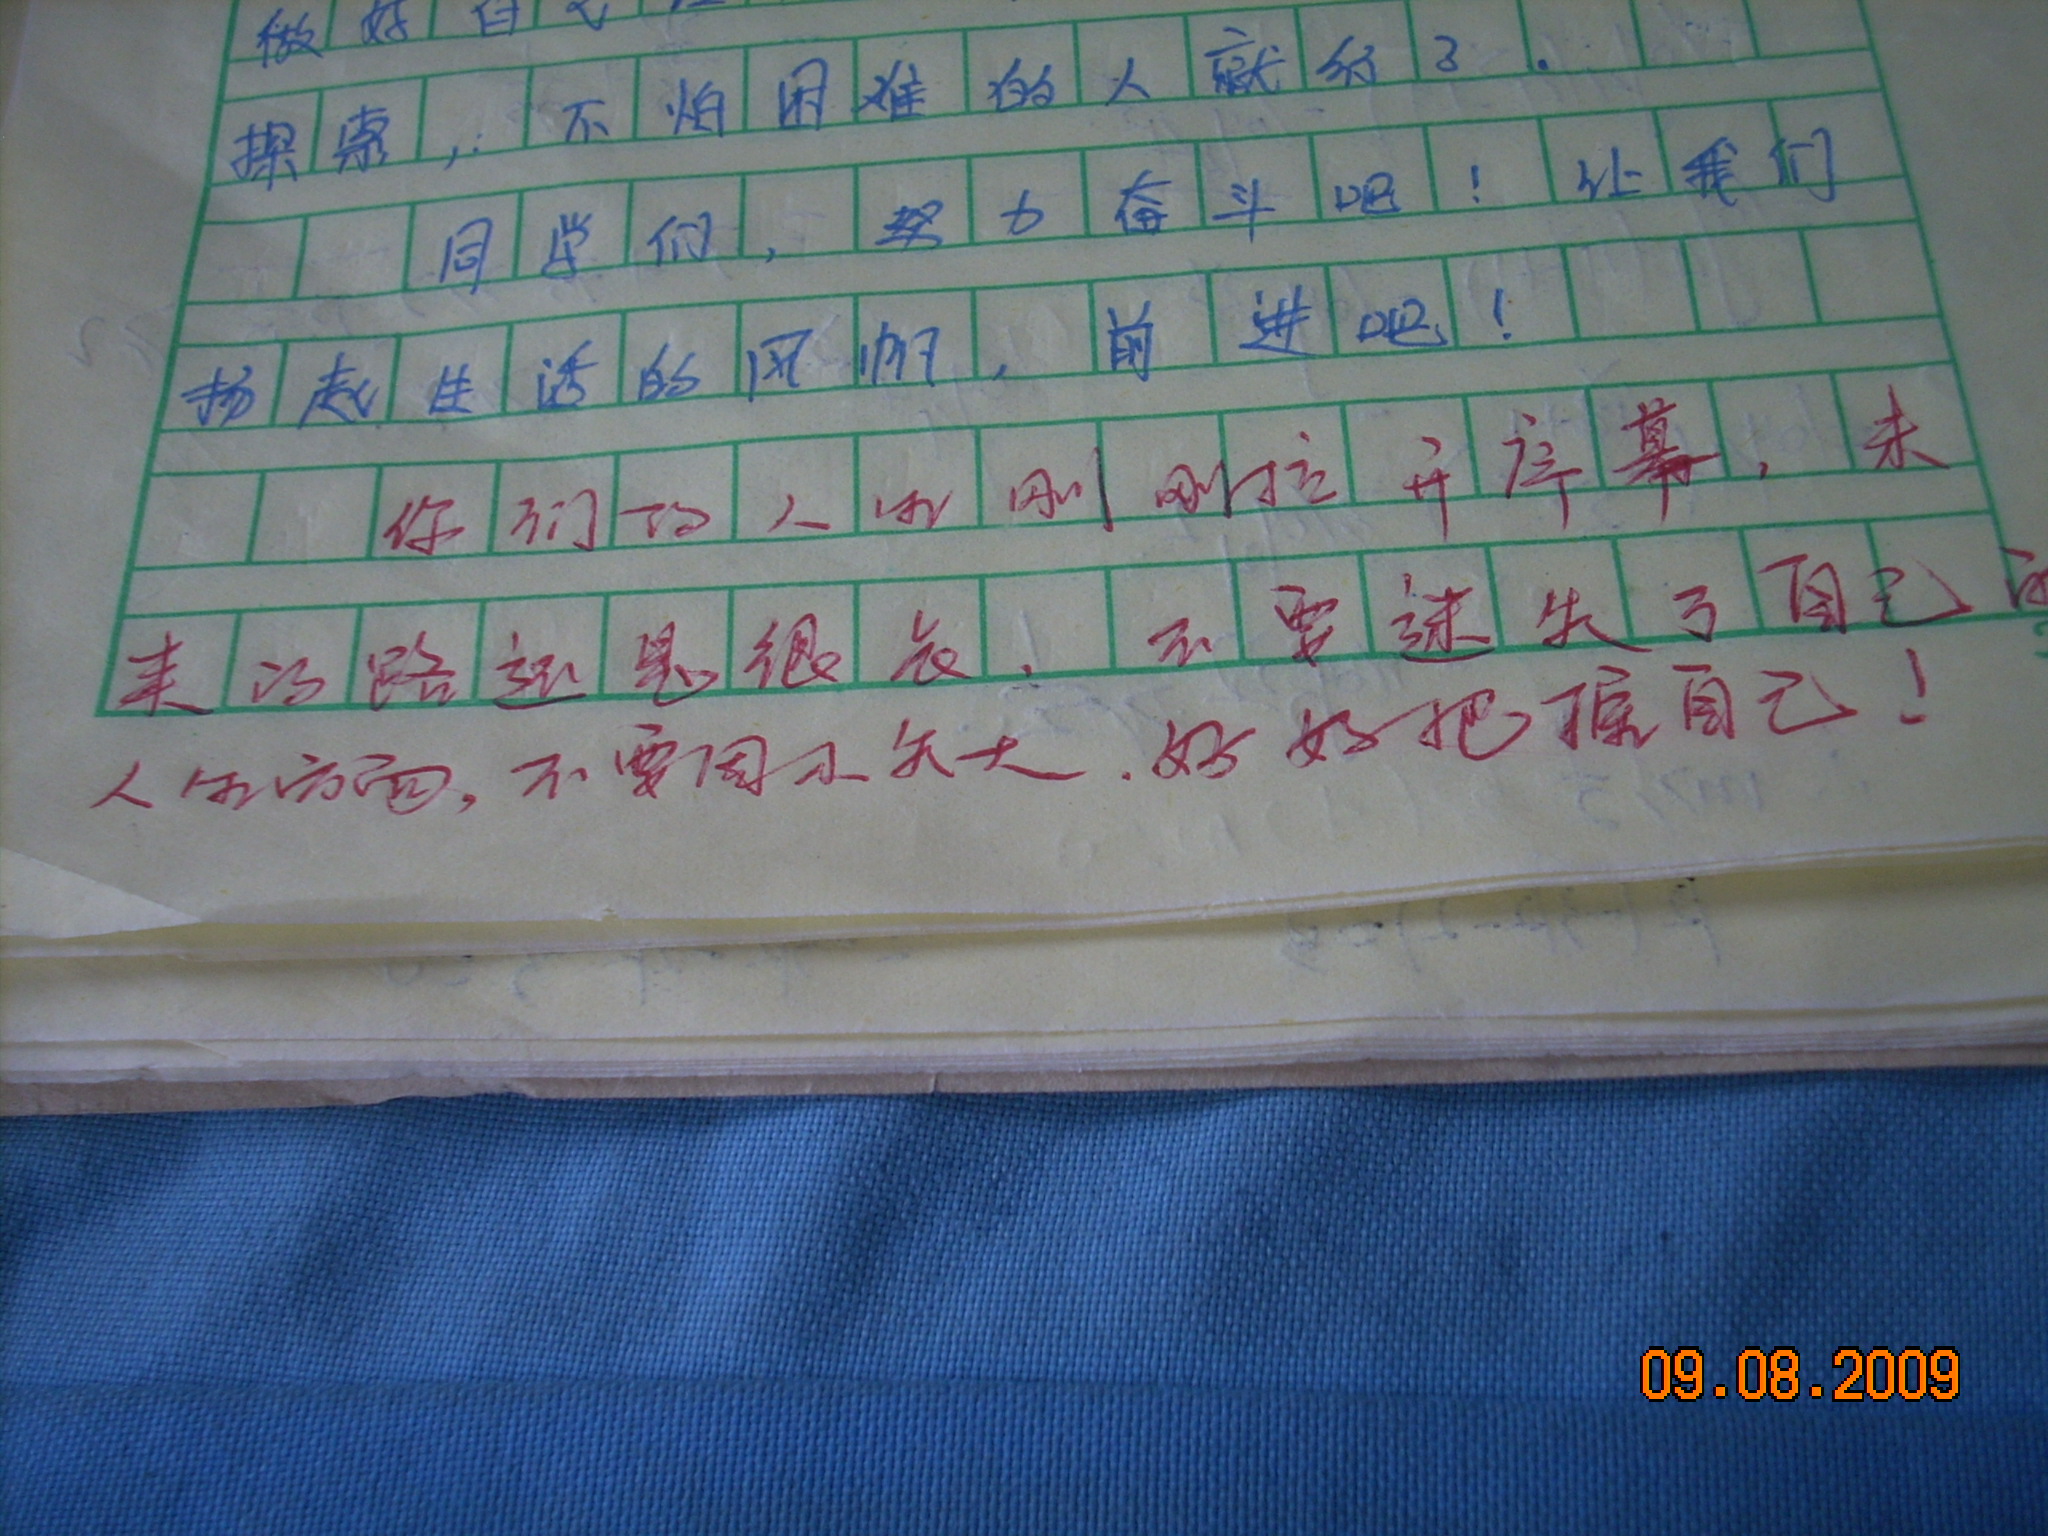 做好自
探索,不怕困难的人就行了.
同学们,努力奋斗吧!让我们
扬起生活的风帆,前进吧!
你们的人生刚刚拉开序幕,未
来的路还是很长.不要迷失了自己的
人生方面,不要因小失大.好好把握自己!
09.08.2009